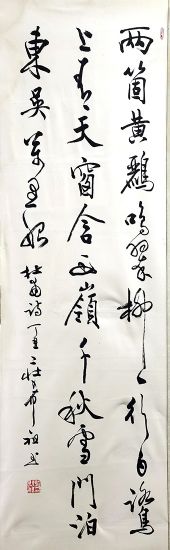 兩箇黃鸝鳴翠柳一行白鷺
上青天窗含西嶺千秋雪門泊
東吳萬里船 杜甫诗